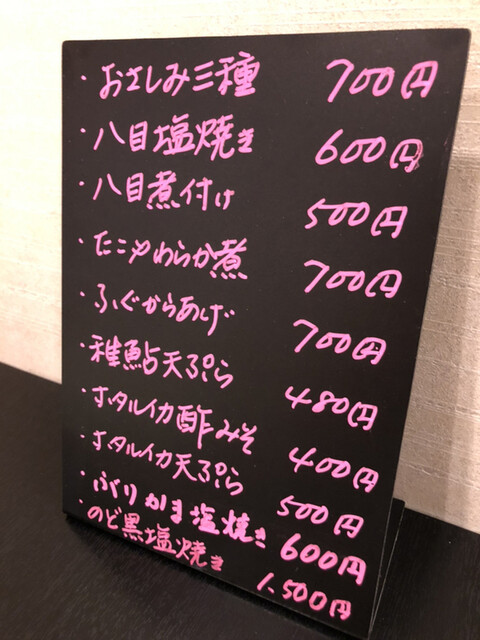 ・おさしみ三種 700円
・八目塩焼き 600円
・八目煮付け 500円
・たこやわらか煮 700円
・ふぐからあげ 700円
・稚鮎天ぷら 480円
・ホタルイカ酢みそ 400円
・ホタルイカ天ぷら 500円
・ぶりかま塩焼き 600円
・のど黒塩焼き 1,500円